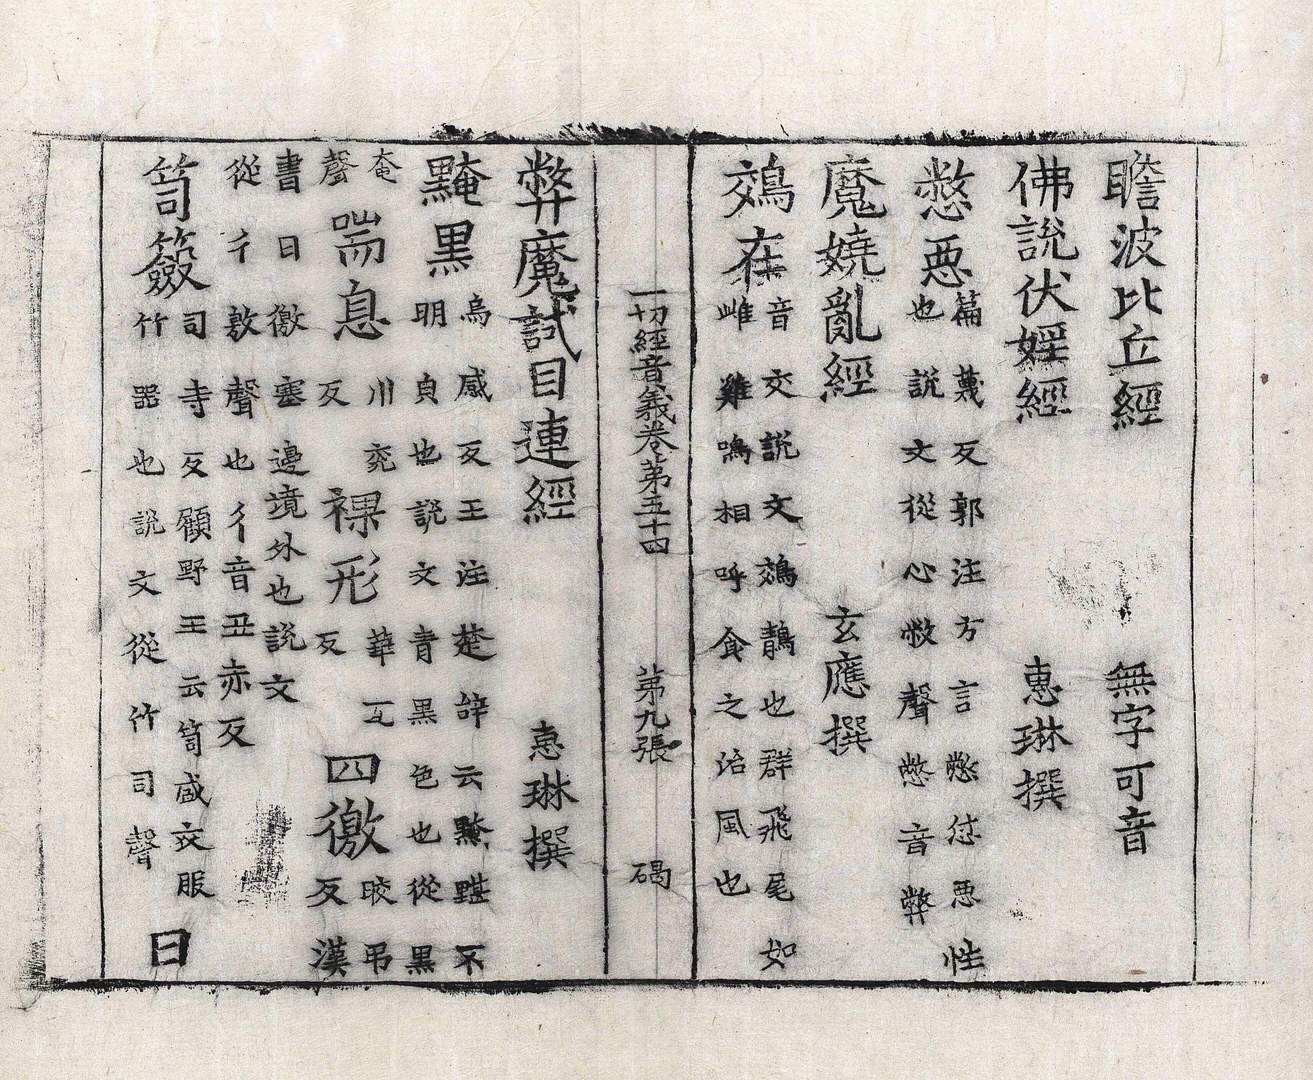 瞻波比丘經 無字可音
佛說伏婬經 惠琳撰
憋惡
篇蔑反郭注方言憋怤惡性
也說文從心敝聲憋音弊
魔嬈亂經 玄應撰
鵁在
音交說文鵁鶄也群飛尾如
雌雞鳴相呼食之治風也
一切經音義卷第五十四 第九張 碣
弊魔試目連經 惠琳撰
黤黑
烏感反王注楚辭云黤黮不
明皃也說文青黑色也從黑
奄
聲
喘息
川兖
反
裸形
華瓦
反
四徼
晈弔
反漢
書曰徼塞邊境外也說文
從彳敫聲也彳音丑赤反
笥籢
司寺反顧野王云笥盛交服
竹器也說文從竹司聲
曰